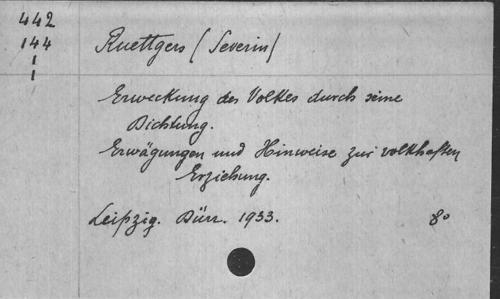 442
144
1
1
Ruettgers (Severin)
Erweckung des Volkes durch seine
Dichtung.
Erwägungen und Hinweise zur volkhaften
Erziehung.
Leipzig. Dürr. 1933. 8°